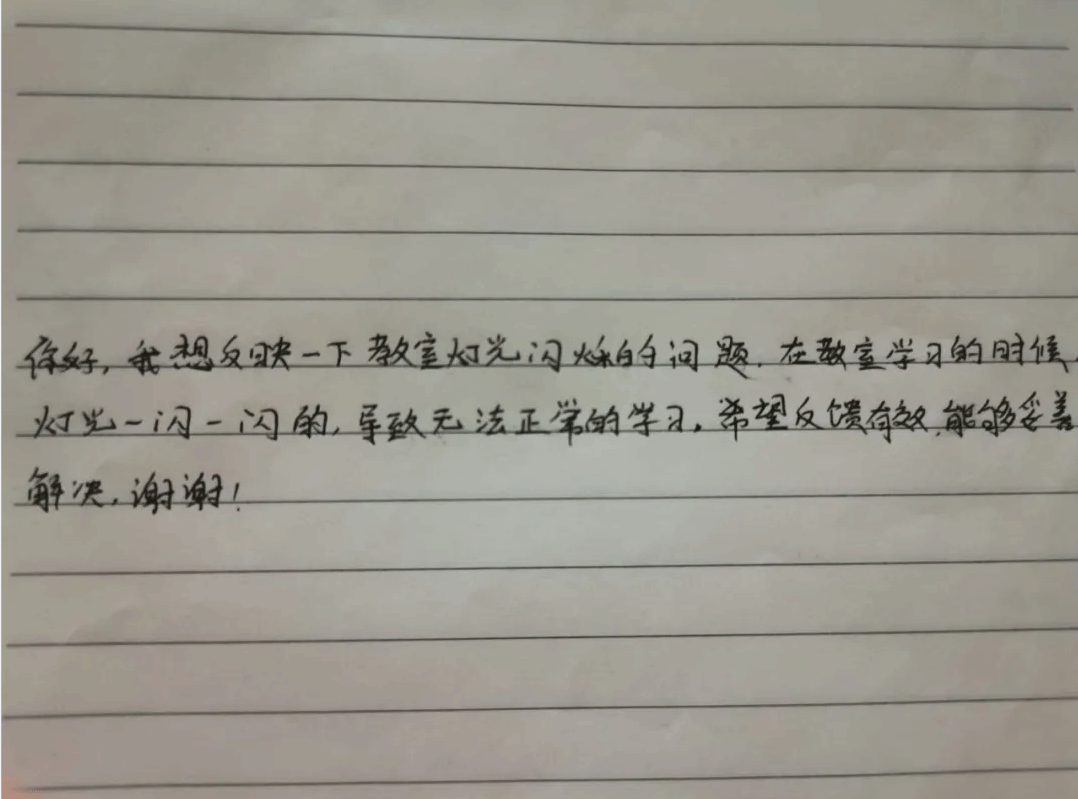 你好，我想反映一下教室灯光闪烁的问题.在教室学习的时候，
灯光一闪一闪的,导致无法正常的学习,希望反馈有效,能够妥善
解决,谢谢!